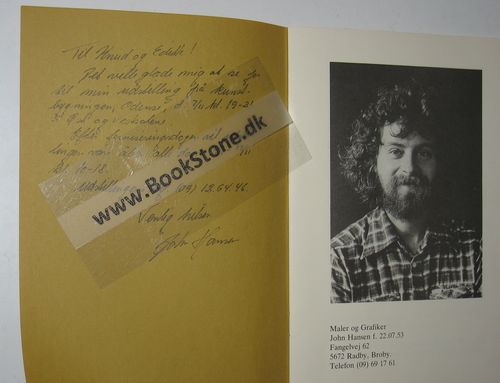 Til Knud og Edith!
Det ville glæde mig at se jer
til min udstilling frå kunst-
bygningen, Odense, d. 7/11 kl. 19-21
Efter ferniseringsdagen vil
kl. 10-18.
Udstillingen (09) 13.64.46.
Venlig hilsen
John Hansen
www.BookStone.dk
Maler og Grafiker
John Hansen f. 22.07.53
Fangelvej 62
5672 Radby, Broby.
Telefon (09) 69 17 61